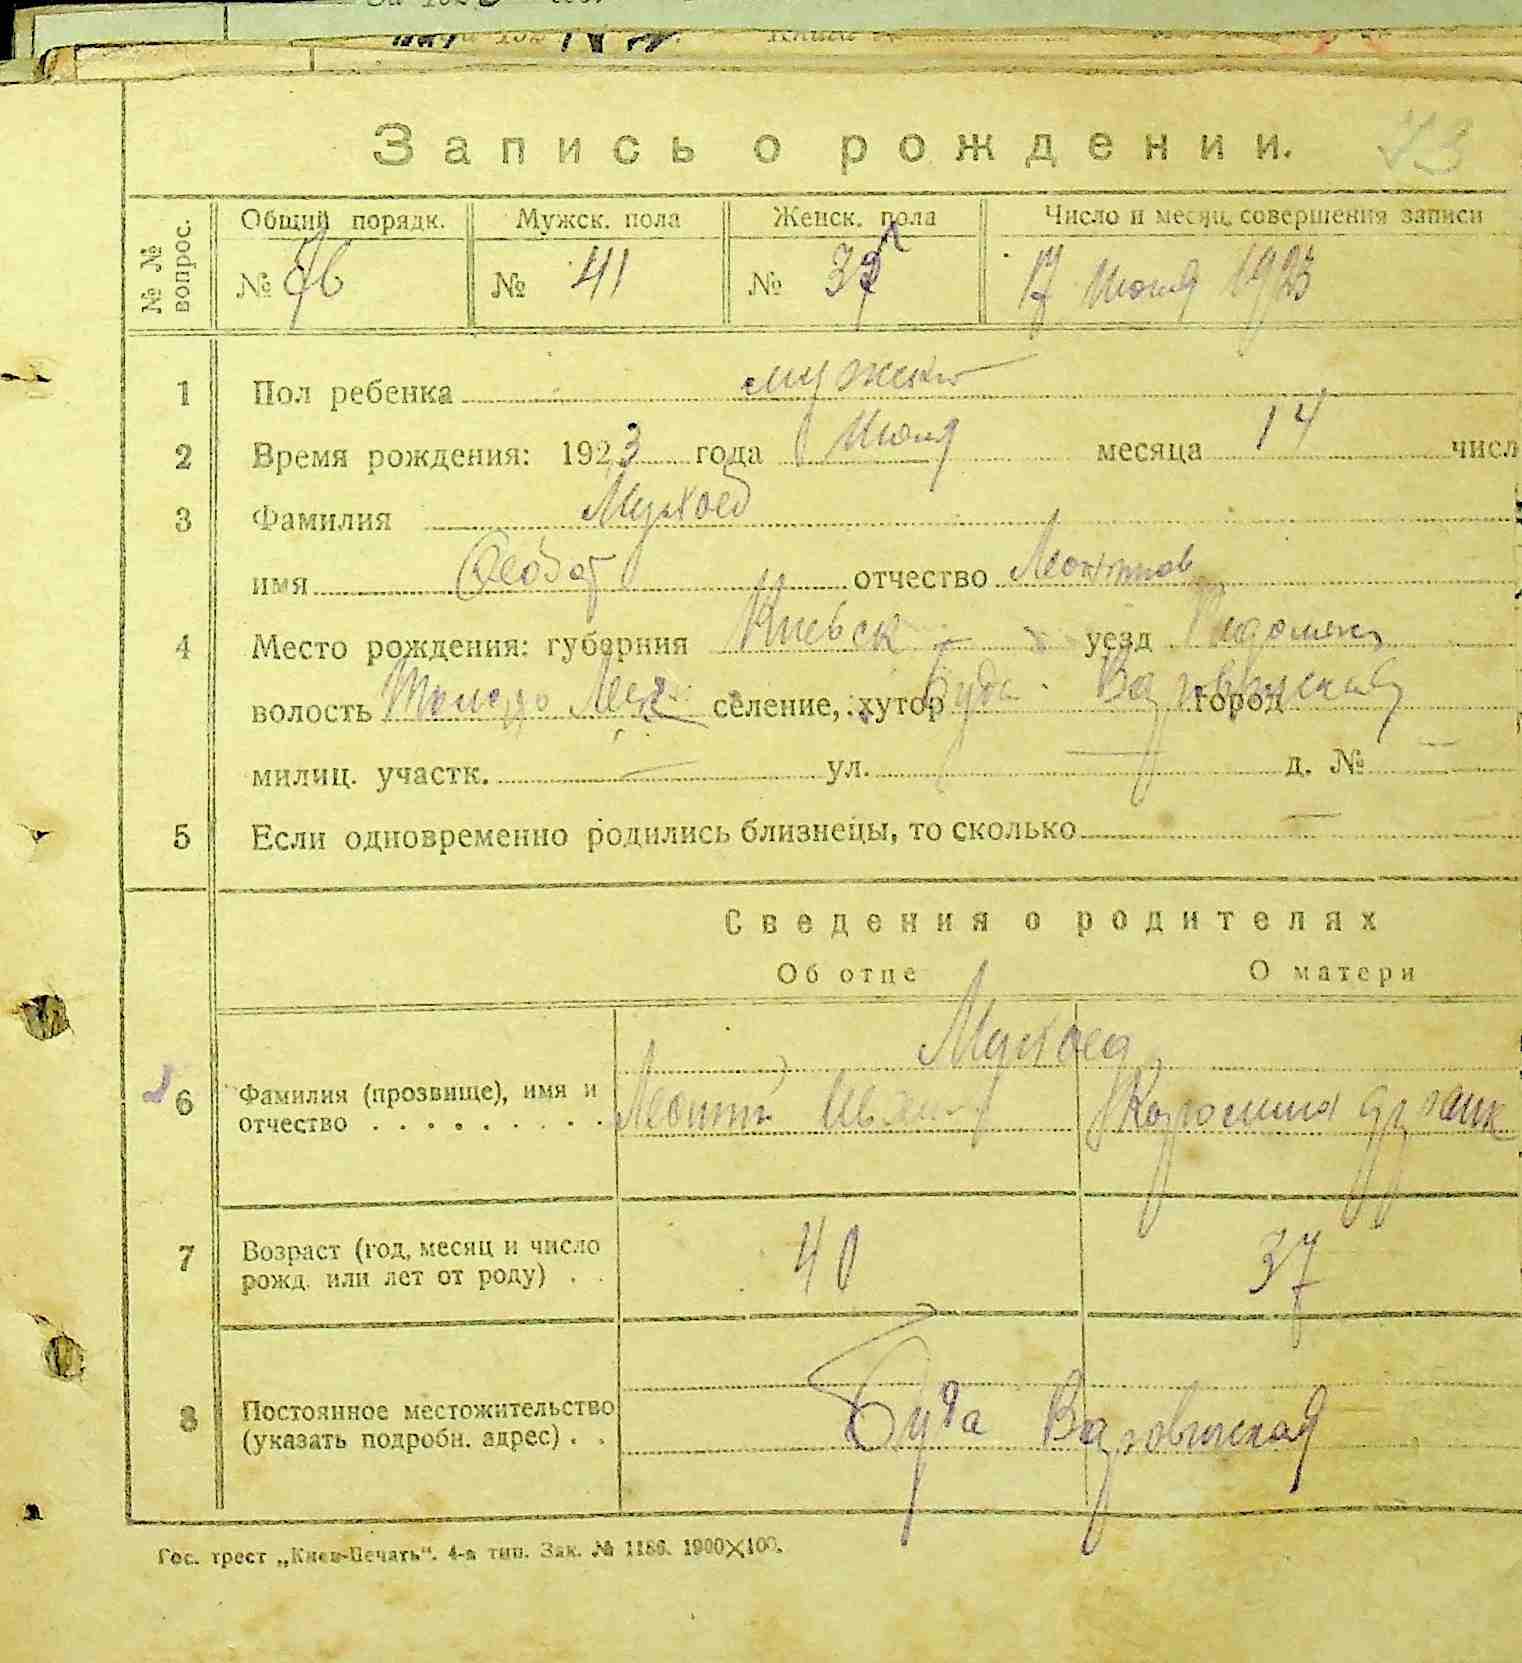 Запись о рождении. 73
№ № вопрос. Общий порядк. Мужск. пола Женск. пола Число и месяц. совершения записи
№ 76 № 41 № 37 17 Июня 1923
1 Пол ребенка мужско
2 Время рождения: 1923 года Июня месяца 14 числ
3 Фамилия Мухоед
имя отчество Леонтиев
4 Место рождения: губерния Киевск уезд
волость селение, хутор Буда город
милиц. участк. — ул. — д. № —
5 Если одновременно родились близнецы, то сколько —
Сведения о родителях
Об отце О матери
Мухоед
6 Фамилия (прозвище), имя и
отчество . . . . . . . . . Леонтий Иван
7 Возраст (год, месяц и число
рожд. или лет от роду) . . 40 37
8 Постоянное местожительство
(указать подробн. адрес) . . Буда
Гос. трест „Киев-Печать“. 4-я тип. Зак. № 1186. 1900×100.